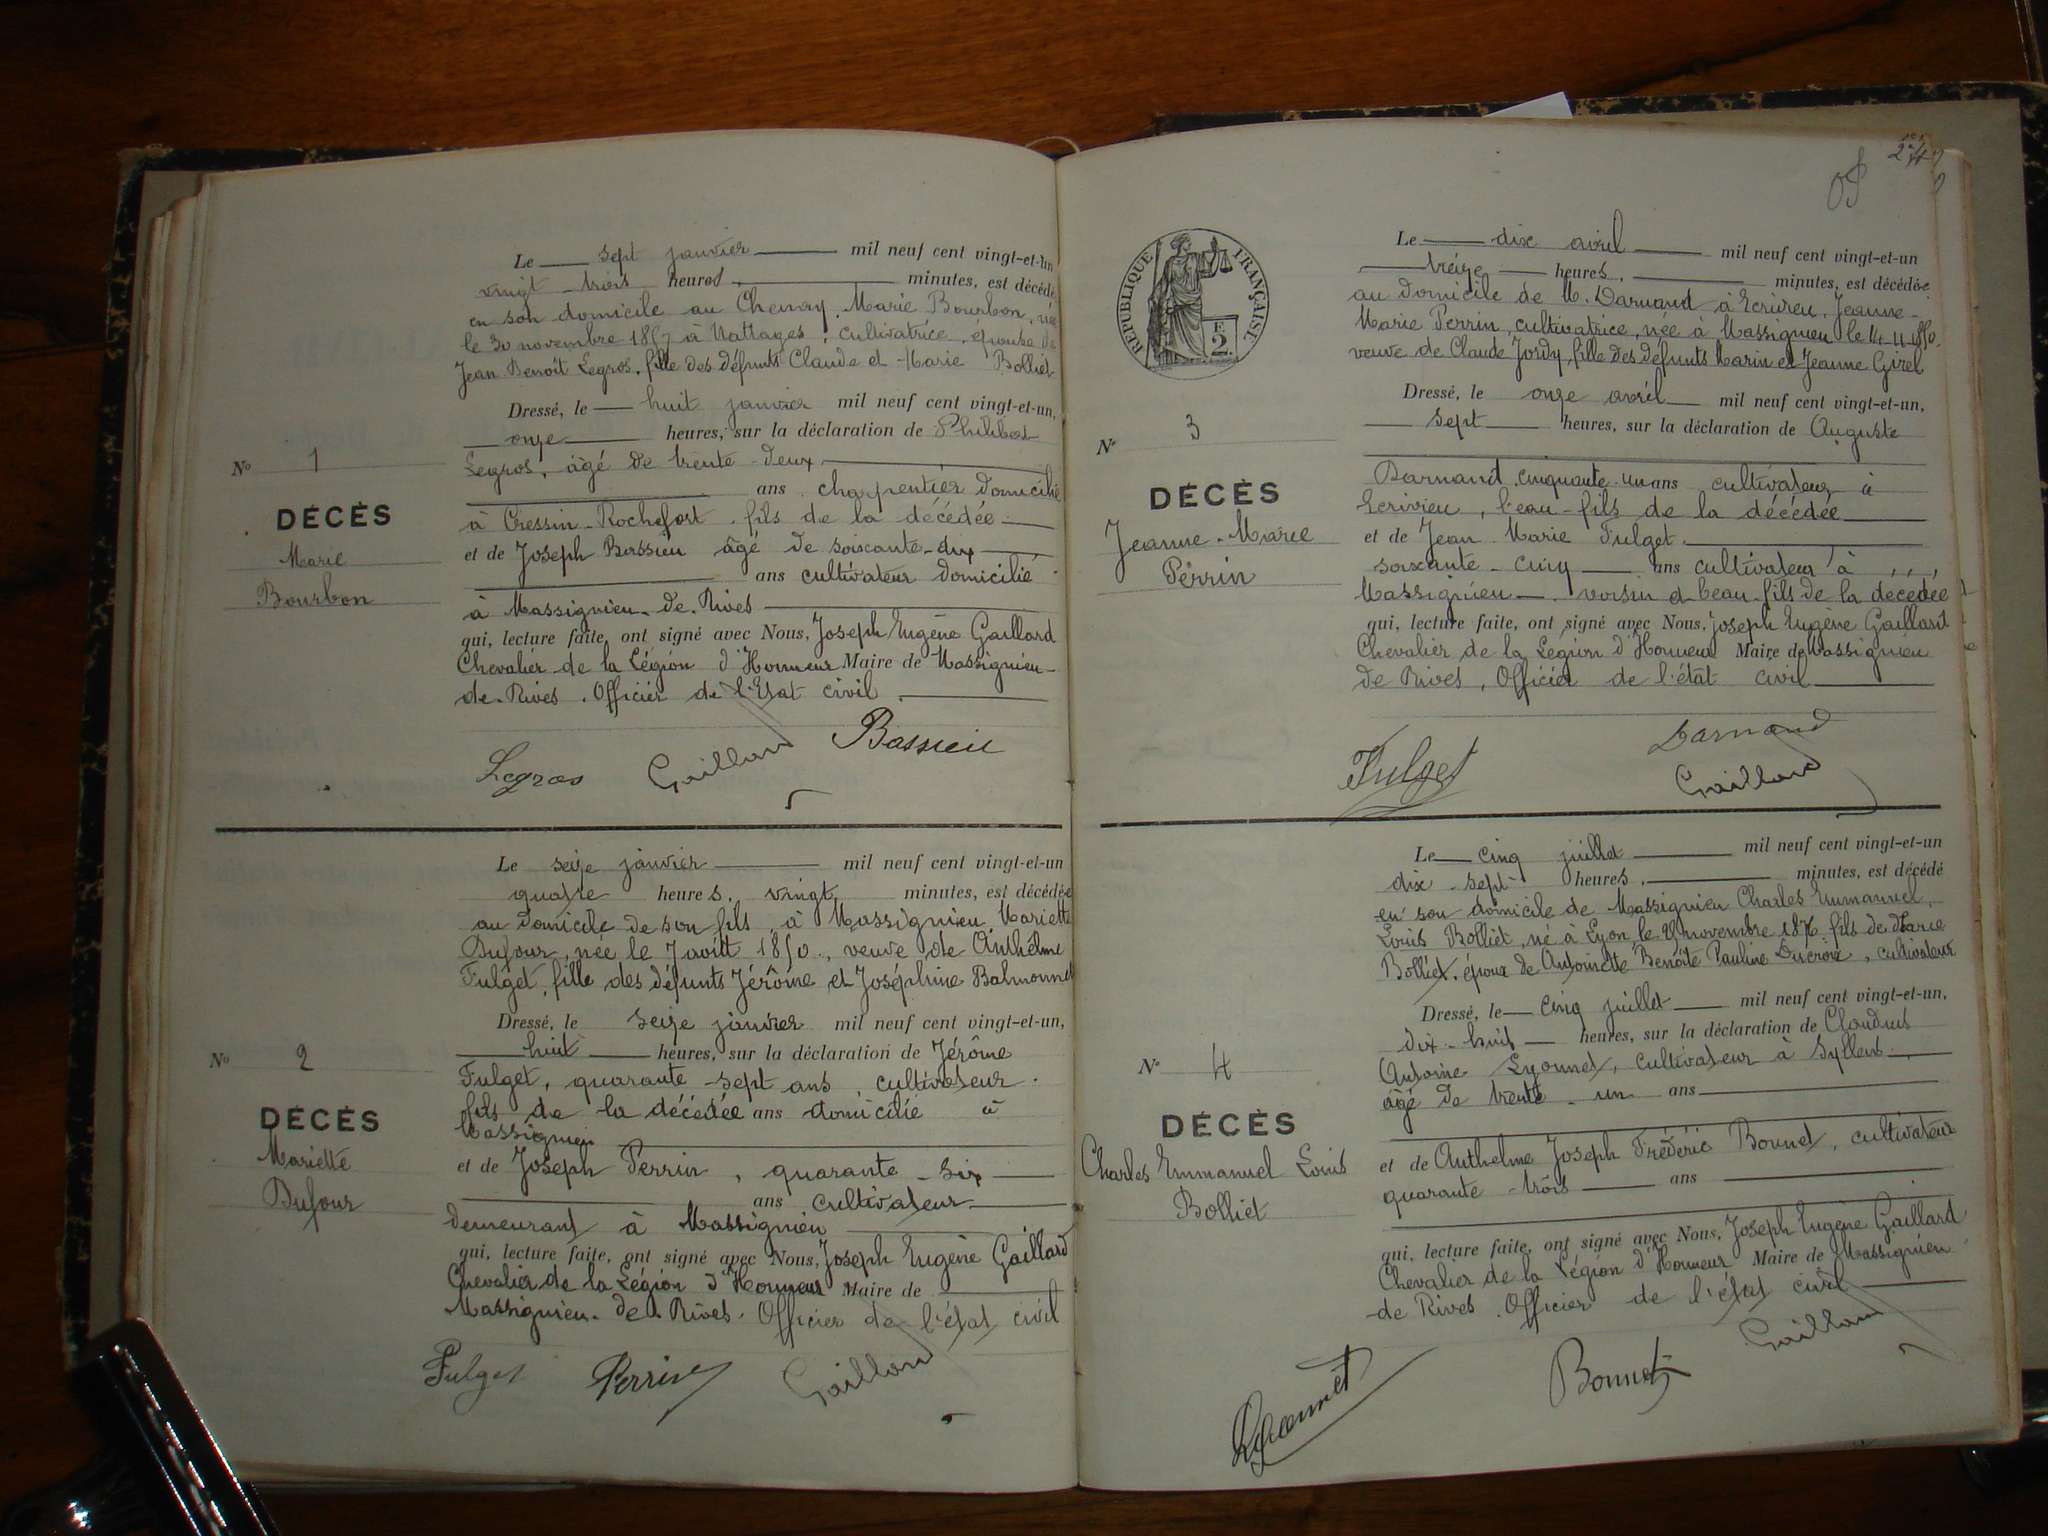 Le sept janvier mil neuf cent vingt-et-un
vingt-trois heures, minutes, est décédé
en son domicile au Chevray, Marie Bourbon, née
le 30 novembre 1857 à Nattages, cultivatrice, épouse de
Jean Benoît Legros, fille des défunts Claude et Marie Bolliet
Dressé, le huit janvier mil neuf cent vingt-et-un,
onze heures, sur la déclaration de Philibert
Legros, âgé de trente-deux
ans charpentier domicilié
à Cressin-Rochefort, fils de la décédée
et de Joseph Bassieu âgé de soixante-dix
ans cultivateur domicilié
à Massignieu-de-Rives
qui, lecture faite, ont signé avec Nous, Joseph Eugène Gaillard
Chevalier de la Légion d'Honneur Maire de Massignieu-
de-Rives. Officier de l'Etat civil.
Legros Gaillard Bassieu
N° 1
DÉCÈS
Marie
Bourbon
Le seize janvier mil neuf cent vingt-et-un
quatre heures, vingt minutes, est décédée
au domicile de son fils, à Massignieu, Mariette
Dufour, née le 7 août 1850, veuve de Anthelme
Fulget, fille des défunts Jérôme et Joséphine Balmonnet
Dressé, le seize janvier mil neuf cent vingt-et-un,
huit heures, sur la déclaration de Jérôme
Fulget, quarante-sept ans, cultivateur.
fils de la décédée ans domicilié à
Massignieu
et de Joseph Perrin, quarante-six
ans cultivateur
demeurant à Massignieu
qui, lecture faite, ont signé avec Nous, Joseph Eugène Gaillard
Chevalier de la Légion d'Honneur Maire de
Massignieu-de-Rives. Officier de l'état civil
Fulget Perrin Gaillard
N° 2
DÉCÈS
Mariette
Dufour
RÉPUBLIQUE FRANÇAISE
F.
2.
Le dix avril mil neuf cent vingt-et-un
treize heures, minutes, est décédée
au domicile de M. Darnand à Ecrivieu, Jeanne-
Marie Perrin, cultivatrice, née à Massignieu le 14-11-1850.
veuve de Claude Jordy, fille des défunts Marin et Jeanne Girel
Dressé, le onze avril mil neuf cent vingt-et-un,
sept heures, sur la déclaration de Auguste
Darnand, cinquante-un ans cultivateur à
Ecrivieu, beau-fils de la décédée
et de Jean Marie Fulget
soixante-cinq ans cultivateur à
Massignieu voisin et beau-fils de la décédée
qui, lecture faite, ont signé avec Nous, Joseph Eugène Gaillard
Chevalier de la Légion d'Honneur Maire de Massignieu
de Rives, Officier de l'état civil
Fulget Darnand
Gaillard
N° 3
DÉCÈS
Jeanne-Marie
Perrin
Le cinq juillet mil neuf cent vingt-et-un
dix-sept heures, minutes, est décédé
en son domicile de Massignieu Charles Emmanuel,
Louis Bolliet, né à Lyon le novembre 1876 fils de Marie
Bolliet, époux de Antoinette Benoîte Pauline Ducroix, cultivateur
Dressé, le cinq juillet mil neuf cent vingt-et-un,
dix-huit heures, sur la déclaration de Claudius
Antoine Lyonnet, cultivateur à Syllens
âgé de trente-un ans
et de Anthelme Joseph Frédéric Bonnet, cultivateur
quarante-trois ans
qui, lecture faite, ont signé avec Nous, Joseph Eugène Gaillard
Chevalier de la Légion d'Honneur Maire de Massignieu
de Rives. Officier de l'état civil
Lyonnet Bonnet Gaillard
N° 4
DÉCÈS
Charles Emmanuel Louis
Bolliet